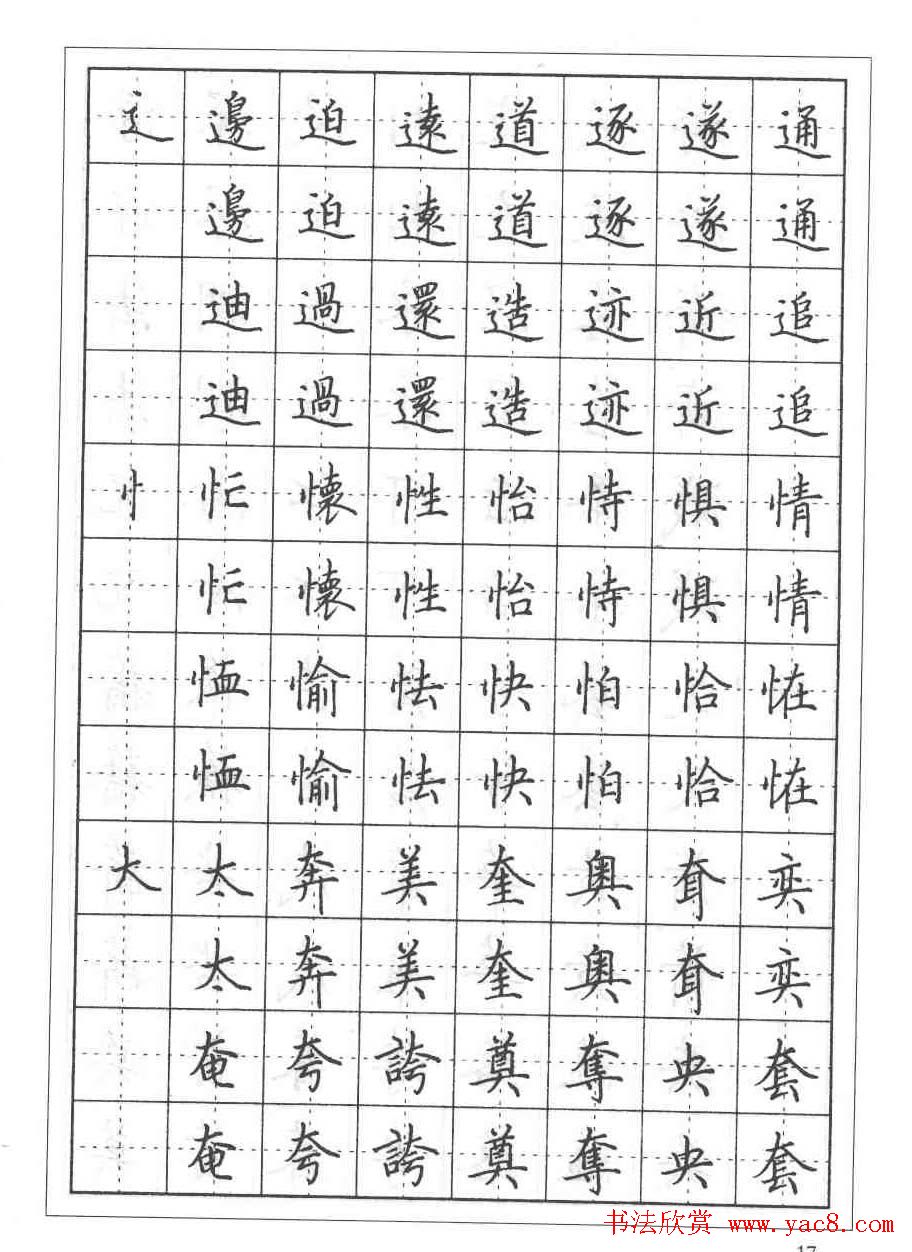 辶 邊 迫 遠 道 逐 遂 通
邊 迫 遠 道 逐 遂 通
迪 過 還 造 迹 近 追
迪 過 還 造 迹 近 追
忄 忙 懷 性 怡 恃 惧 情
忙 懷 性 怡 恃 惧 情
恤 愉 怯 快 怕 恰 恠
恤 愉 怯 快 怕 恰 恠
大 太 奔 美 奎 奥 耷 奕
太 奔 美 奎 奥 耷 奕
奄 夸 誇 奠 奪 央 套
奄 夸 誇 奠 奪 央 套
书法欣赏 www.yac8.com
17